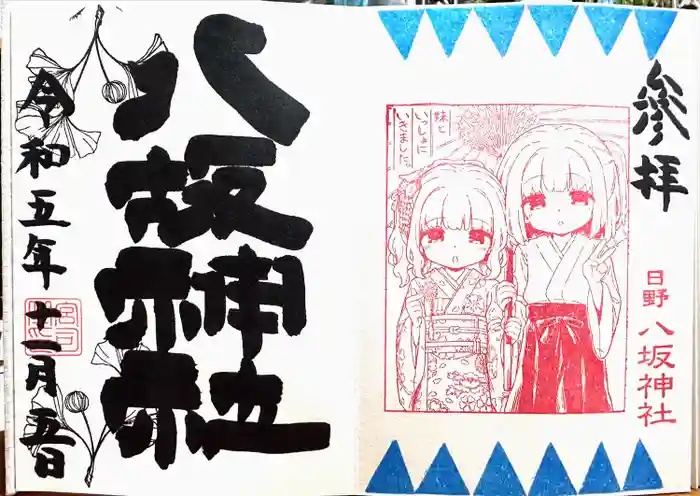 參拝
日野八坂神社
妹と
いっしょに
いきました。
八坂神社
令和五年十一月五日